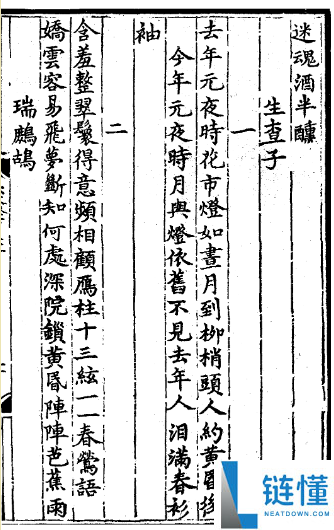 迷魂酒半醺
生查子
一
去年元夜時花市燈如晝月到柳梢頭人約黃昏後
今年元夜時月與燈依舊不見去年人 泪滿春衫
袖
二
含羞整翠鬟得意頻相顧鴈柱十三絃一一春鶯語
嬌雲容易飛夢斷知何處深院鎖黃昏陣陣芭蕉雨
瑞鷓鴣
链懂
NEATDOWN.COM